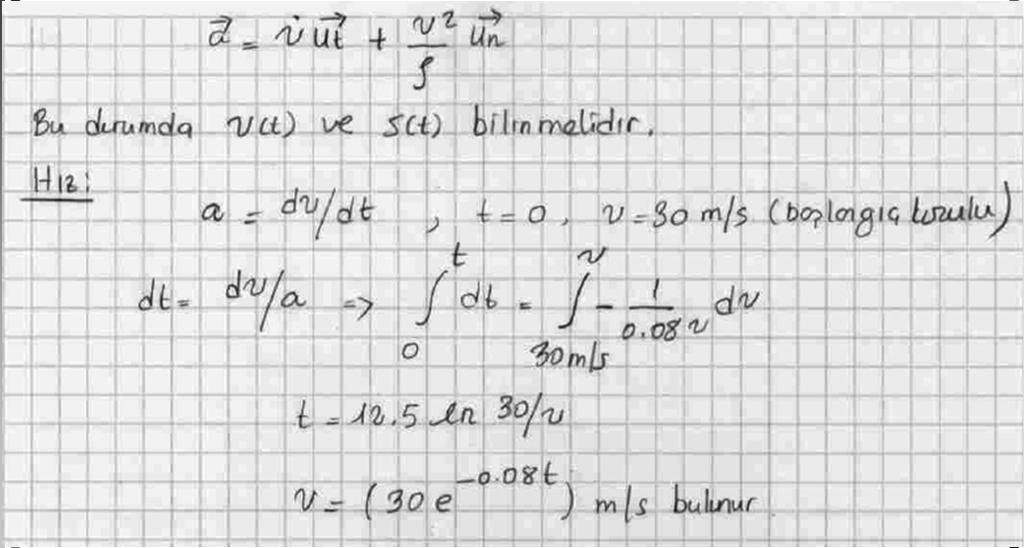 a⃗ = v̇ u⃗t + v²/ρ u⃗n
Bu durumda v(t) ve s(t) bilinmelidir.
Hız:
a = dv/dt , t=0, v=30 m/s (başlangıç koşulu)
dt = dv/a => ∫₀ᵗ dt = ∫_{30m/s}^{v} - 1/0.08v dv
t = 12.5 ln 30/v
v = (30 e^{-0.08t}) m/s bulunur